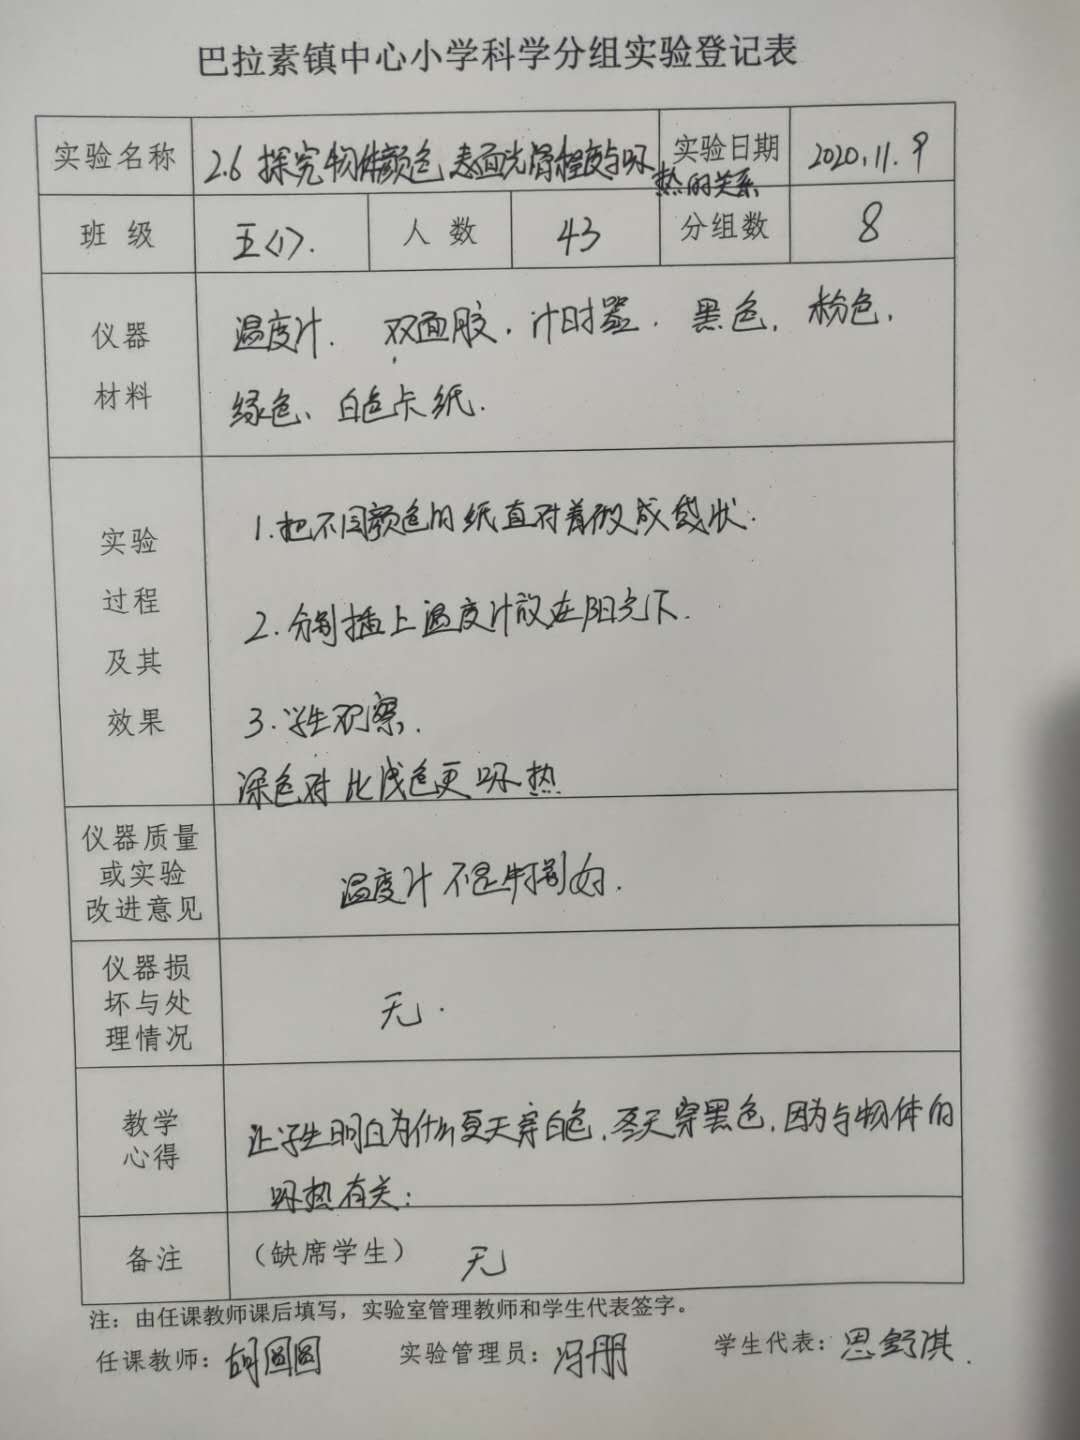 巴拉素镇中心小学科学分组实验登记表
实验名称 2.6 探究物体颜色,表面光滑程度与吸热的关系 实验日期 2020.11.9
班 级 五<1>. 人 数 43 分组数 8
仪器 材料
温度计. 双面胶. 计时器. 黑色, 粉色,
绿色、白色卡纸.
实验 过程 及其 效果
1.把不同颜色的纸直对着做成袋状.
2.分别插上温度计放在阳光下.
3.学生观察.
深色对比浅色更吸热
仪器质量
或实验
改进意见
温度计不是特别好.
仪器损
坏与处
理情况
无.
教学
心得
让学生明白为什么夏天穿白色,冬天穿黑色,因为与物体的
吸热有关;
备注 (缺席学生) 无
注：由任课教师课后填写，实验室管理教师和学生代表签字。
任课教师：胡圆圆 实验管理员：冯朋 学生代表：思舒淇.